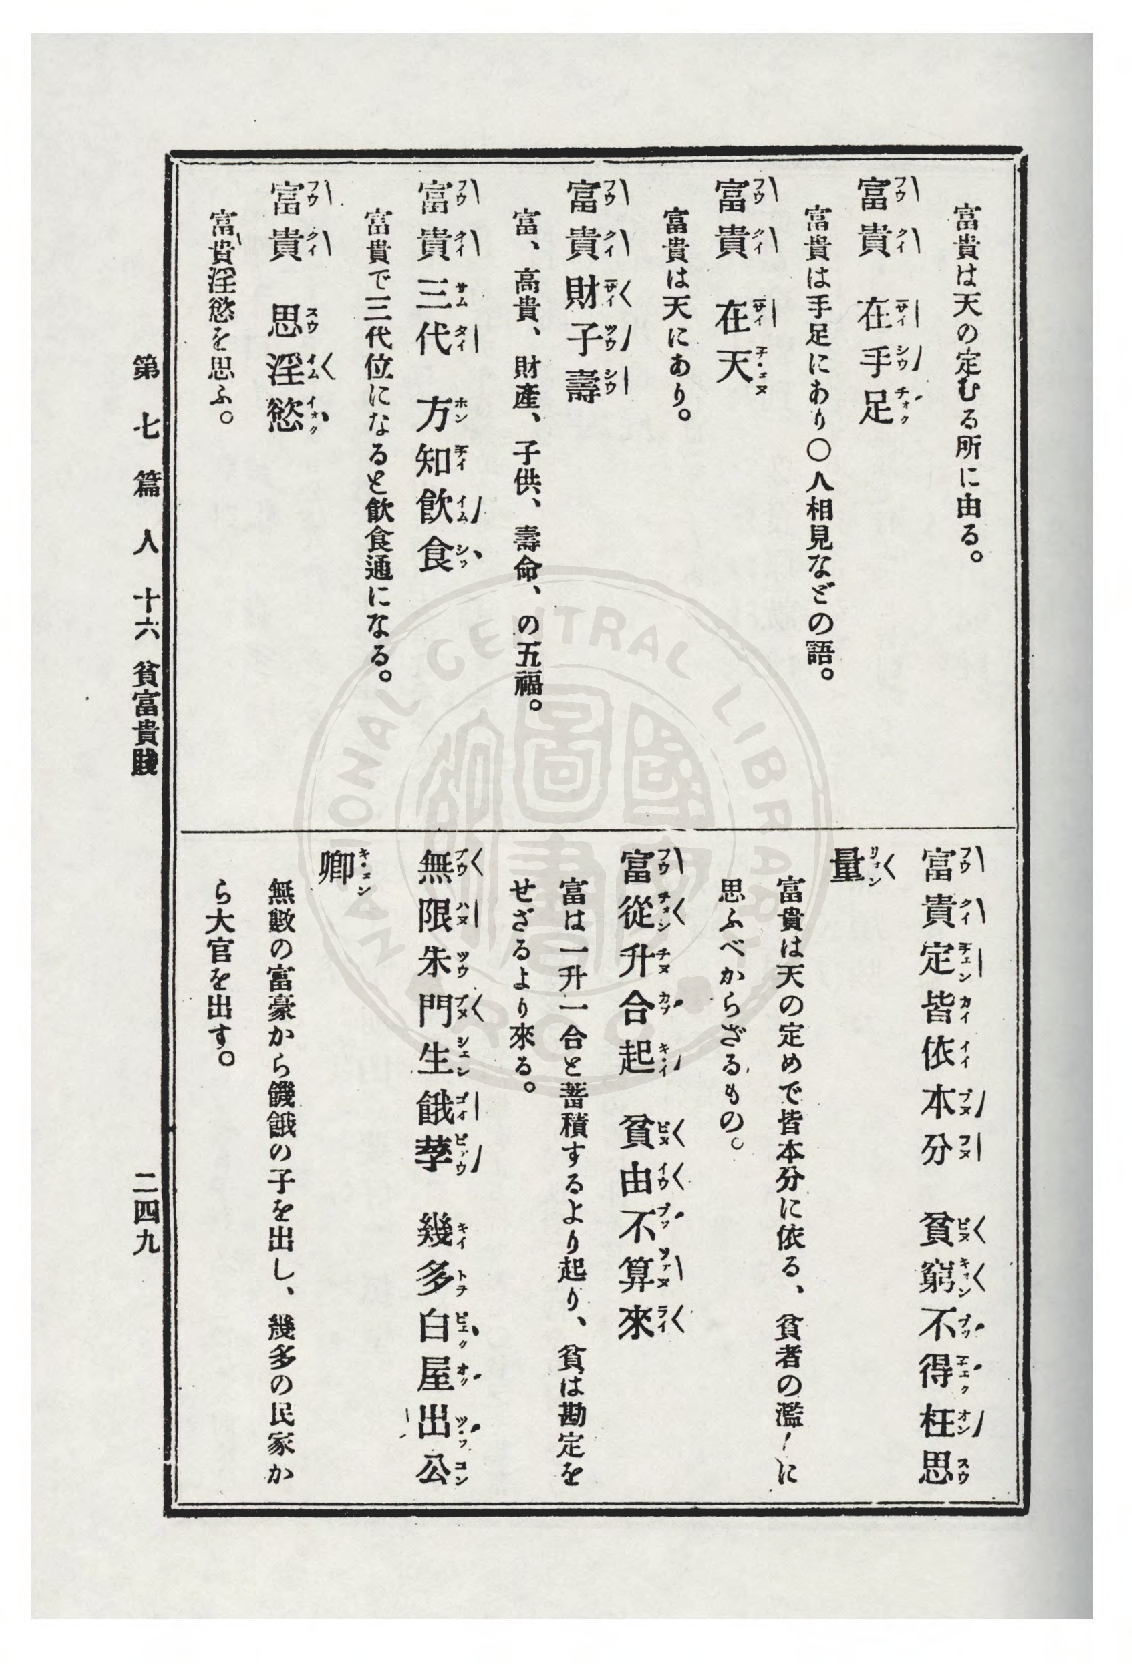 富貴は天の定むる所に由る。
富貴 在手足
富貴は手足にあり〇人相見などの語。
富貴 在天
富貴は天にあり。
富貴財子壽
富、高貴、財產、子供、壽命、の五福。
富貴三代 方知飲食
富貴で三代位になると飲食通になる。
富貴 思淫慾
富貴淫慾を思ふ。
富貴定皆依本分 貧窮不得枉思
量
富貴は天の定めで皆本分に依る、貧者の濫りに
思ふべからざるもの。
富從升合起 貧由不算來
富は一升一合と蓄積するより起り、貧は勘定を
せざるより來る。
無限朱門生餓莩 幾多白屋出公
卿
無數の富豪から饑餓の子を出し、幾多の民家か
ら大官を出す。
第七篇 人 十六 貧富貴賤
二四九
NATIONAL CENTRAL LIBRARY
ROC